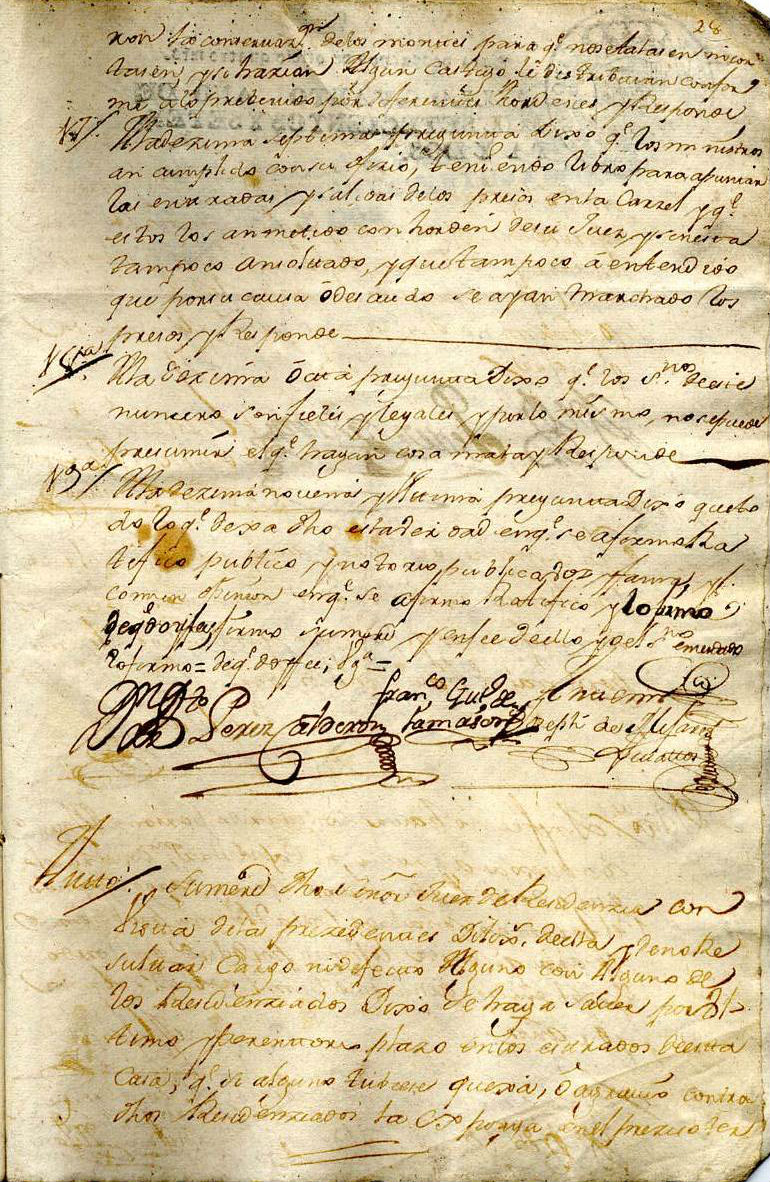 28
ron la conservazn. de los montes para qe. no se talasen ni cor
tasen y si hazian Algun Castigo le distribuian confor
me a lo prebenido por diferentes Hordenes y Responde
17a/ A la dezima septima pregunta Dixo qe. los ministros
an cumplido con su ofizio, teniendo libro para apuntar
las entradas y salidas de los presos en la Carzel y qe.
estos los an metido con horden de su Juez, y sin esta
tampoco an soltado, y que tampoco â entendido
que por su causa ô descuido se ayan Marchado los
presos y Responde
18a/ A la Dezima Octaba pregunta Dixo qe. los ss.nos de este
numero son fieles y legales y por lo mismo, no se puede
presumir el qe. hayan cosa mala y Responde
19a/ A la dezima novena y ultima pregunta Dixo que to
do lo qe. dexa dho es la verdad en qe. se afirmo Ra
tifico publico y notorio, publica voz y fama, y
comun opinion en qe. se afirmo Ratifico y lo firmo
de qe. doy fee, firmo su merd y en fee de ello yo el ss.no emendado
lo firmo = de qe. doy fee;
Perez Calderon
Franco Gul. de
Tamason
Ante mi
Auto/ Su merd dho señor Juez de Residenzia con
vista de las prezedentes Dilixs. de ella y de no Re
sultar Cargo ni defecto Alguno con Alguno de
los Residenziados Dixo se haga saver por Ul
timo y perentorio plazo en los estrados de esta
Casa, qe. si alguno tubiese quexa, ô agravio contra
dhos Residenziados la Exponga en el prezisso ter